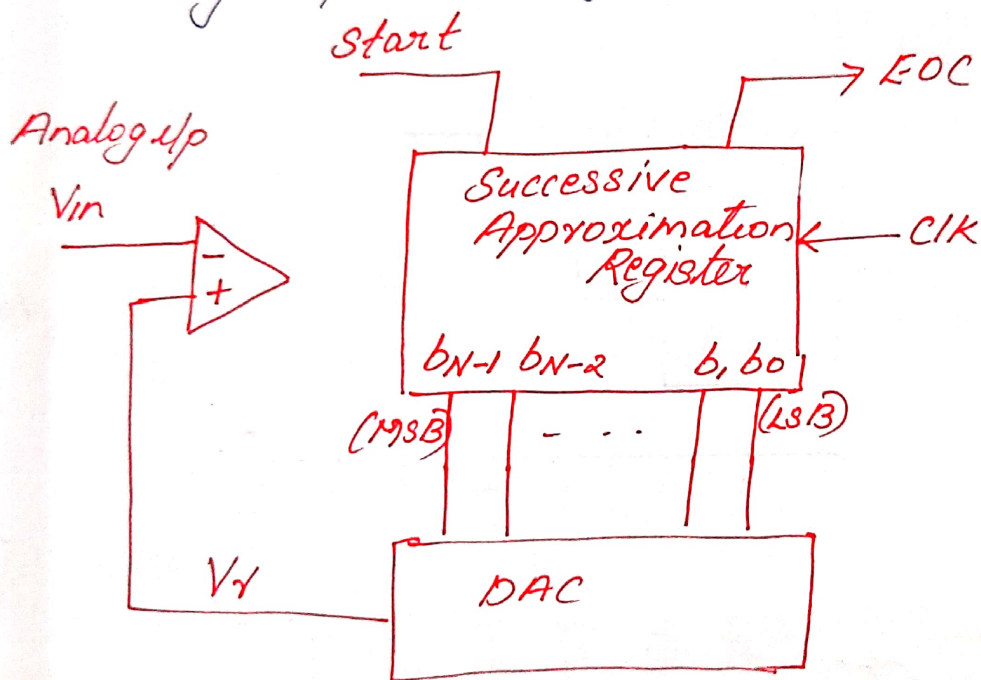 Start
EOC
Analog i/p
Vin
Successive
Approximation
Register
Clk
-
+
bN-1 bN-2 b1 b0
(MSB) - . . . (LSB)
Vr
DAC